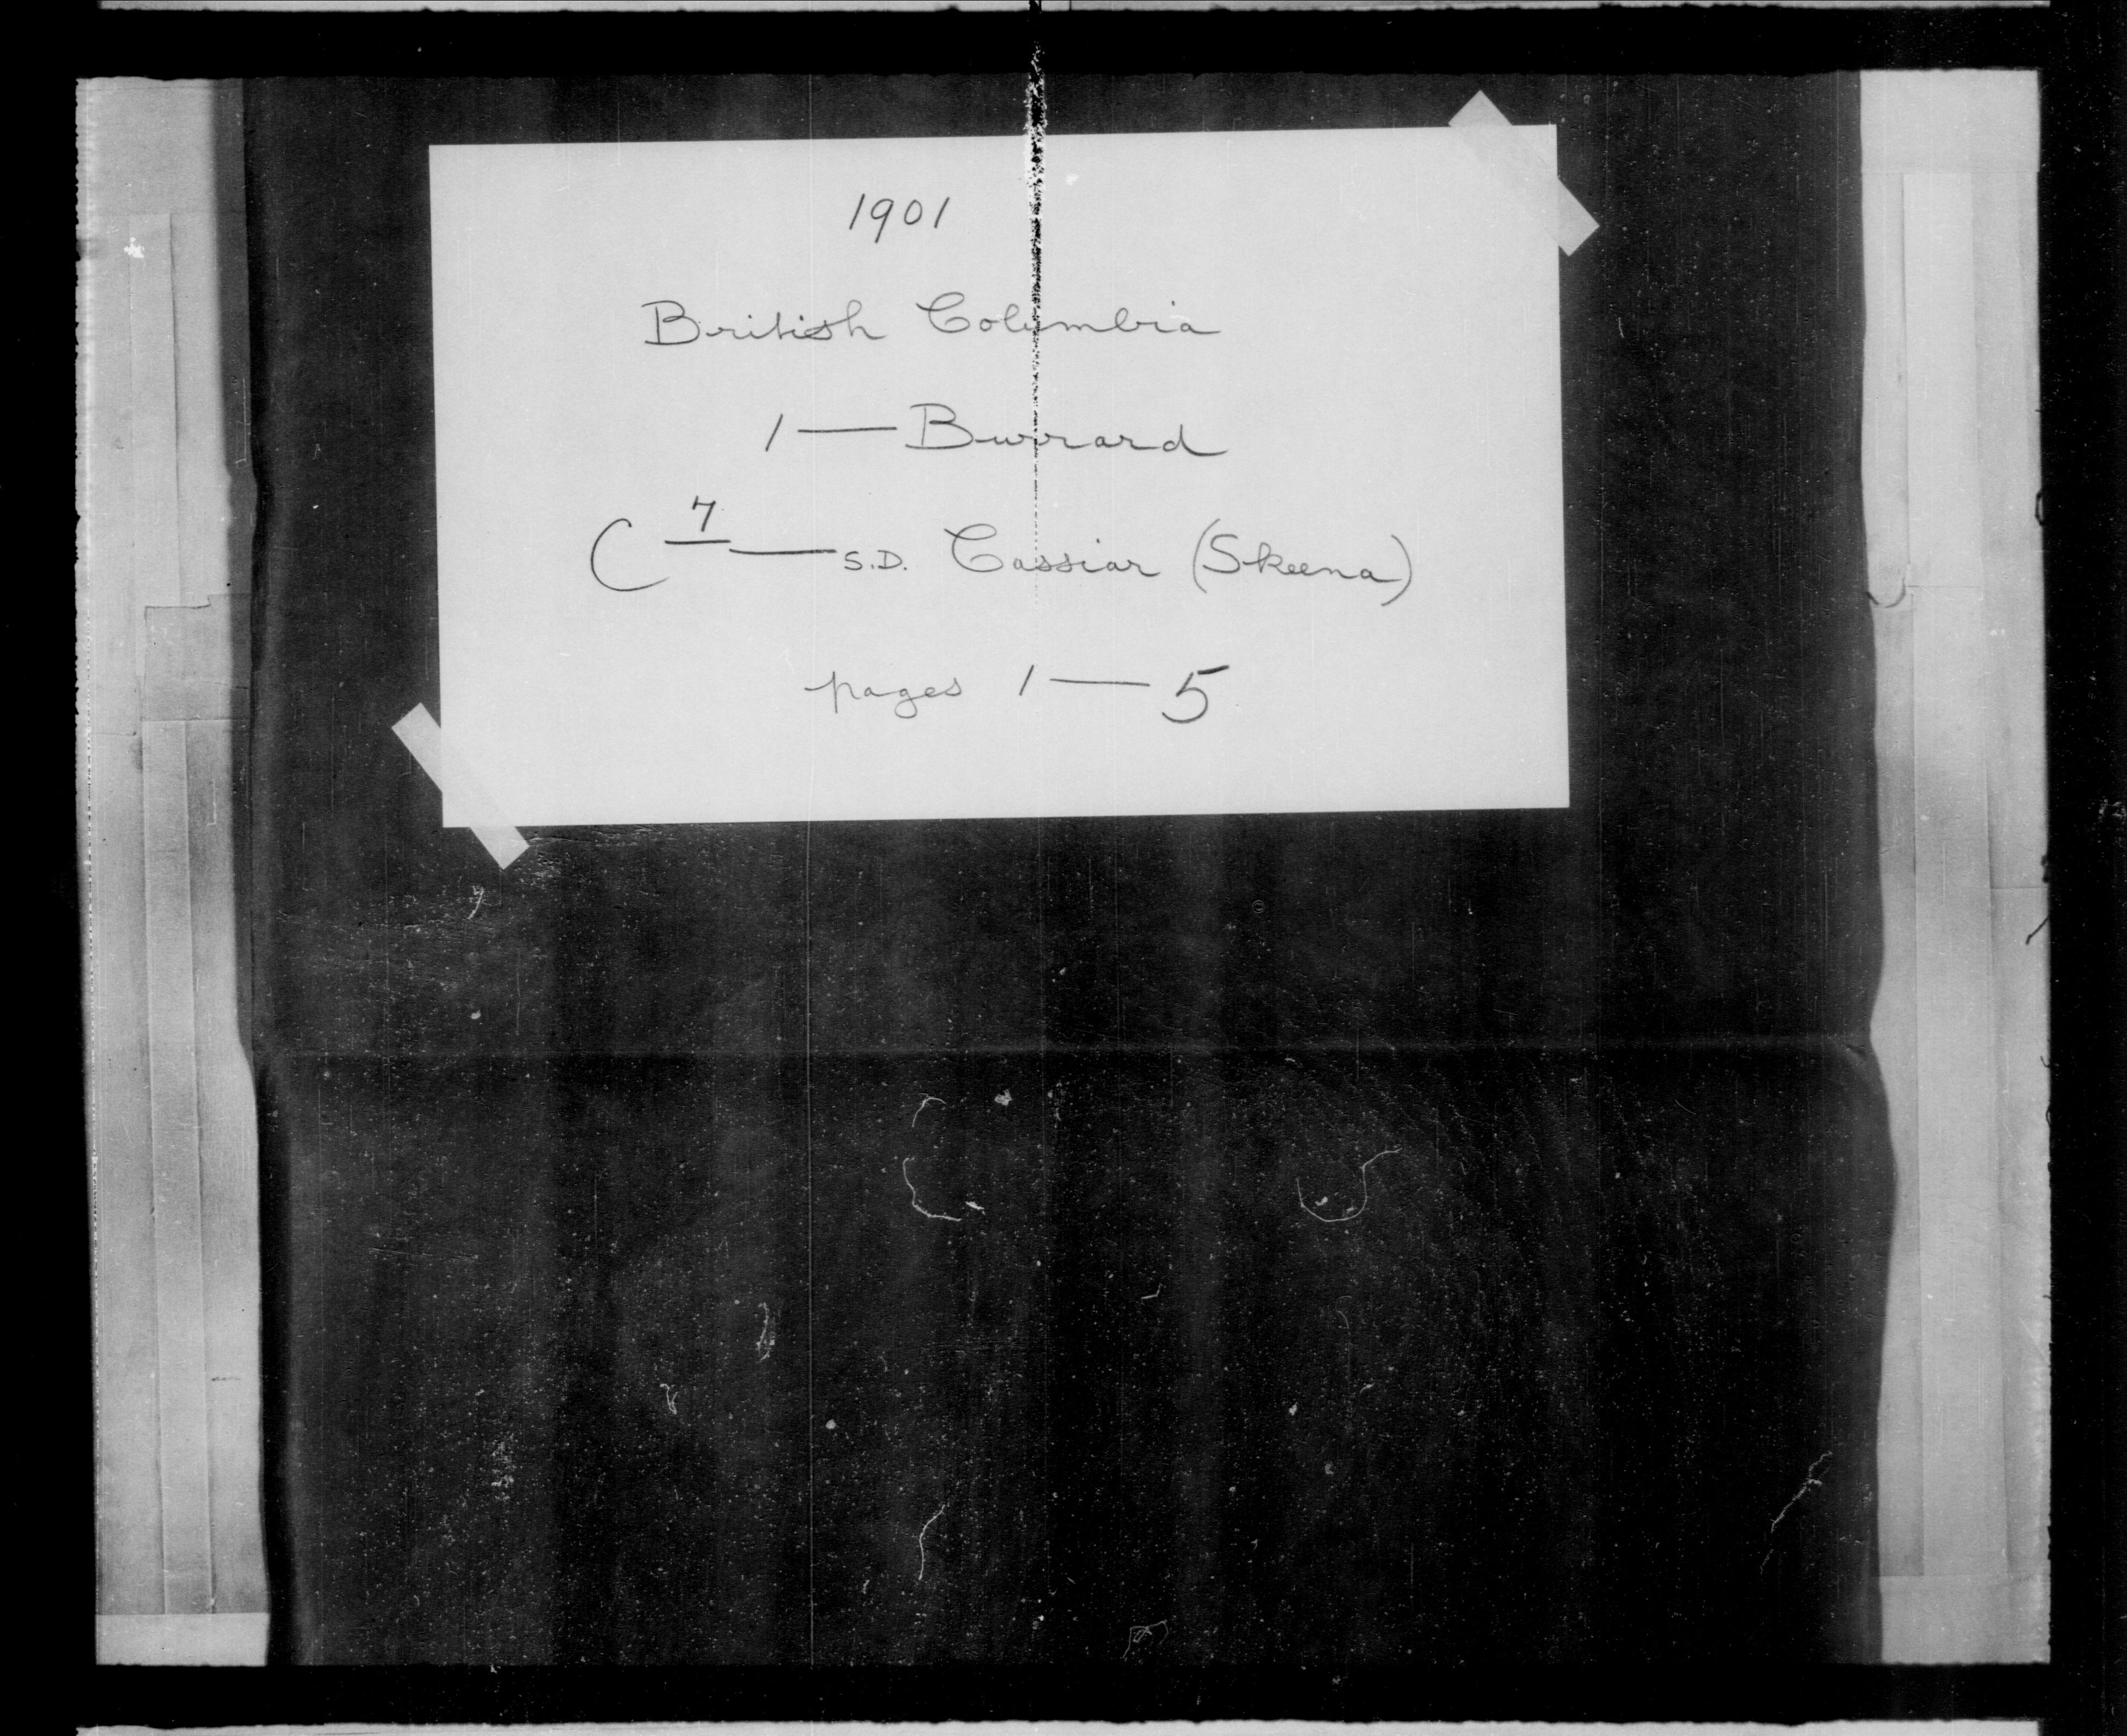 1901
British Columbia
1 — Burrard
C 7 — S.D. Cassiar (Skeena)
pages 1 — 5